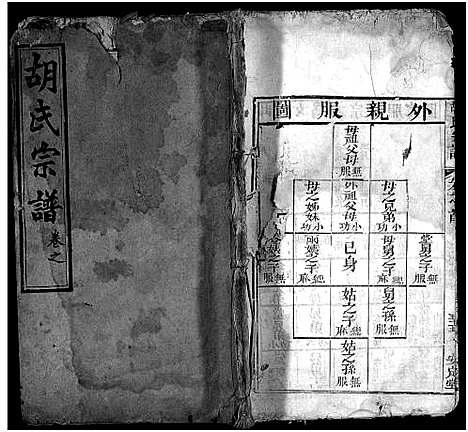 胡氏宗譜
卷之
外親服圖
母祖父母
無服
母之兄弟
小功
外祖父母
母之姊妹
小功
堂舅之子
無服
母舅之子
緦麻
己身
兩姨之子
緦麻
無服
舅之孫
無服
姑之子
緦麻
姑之孫
無服